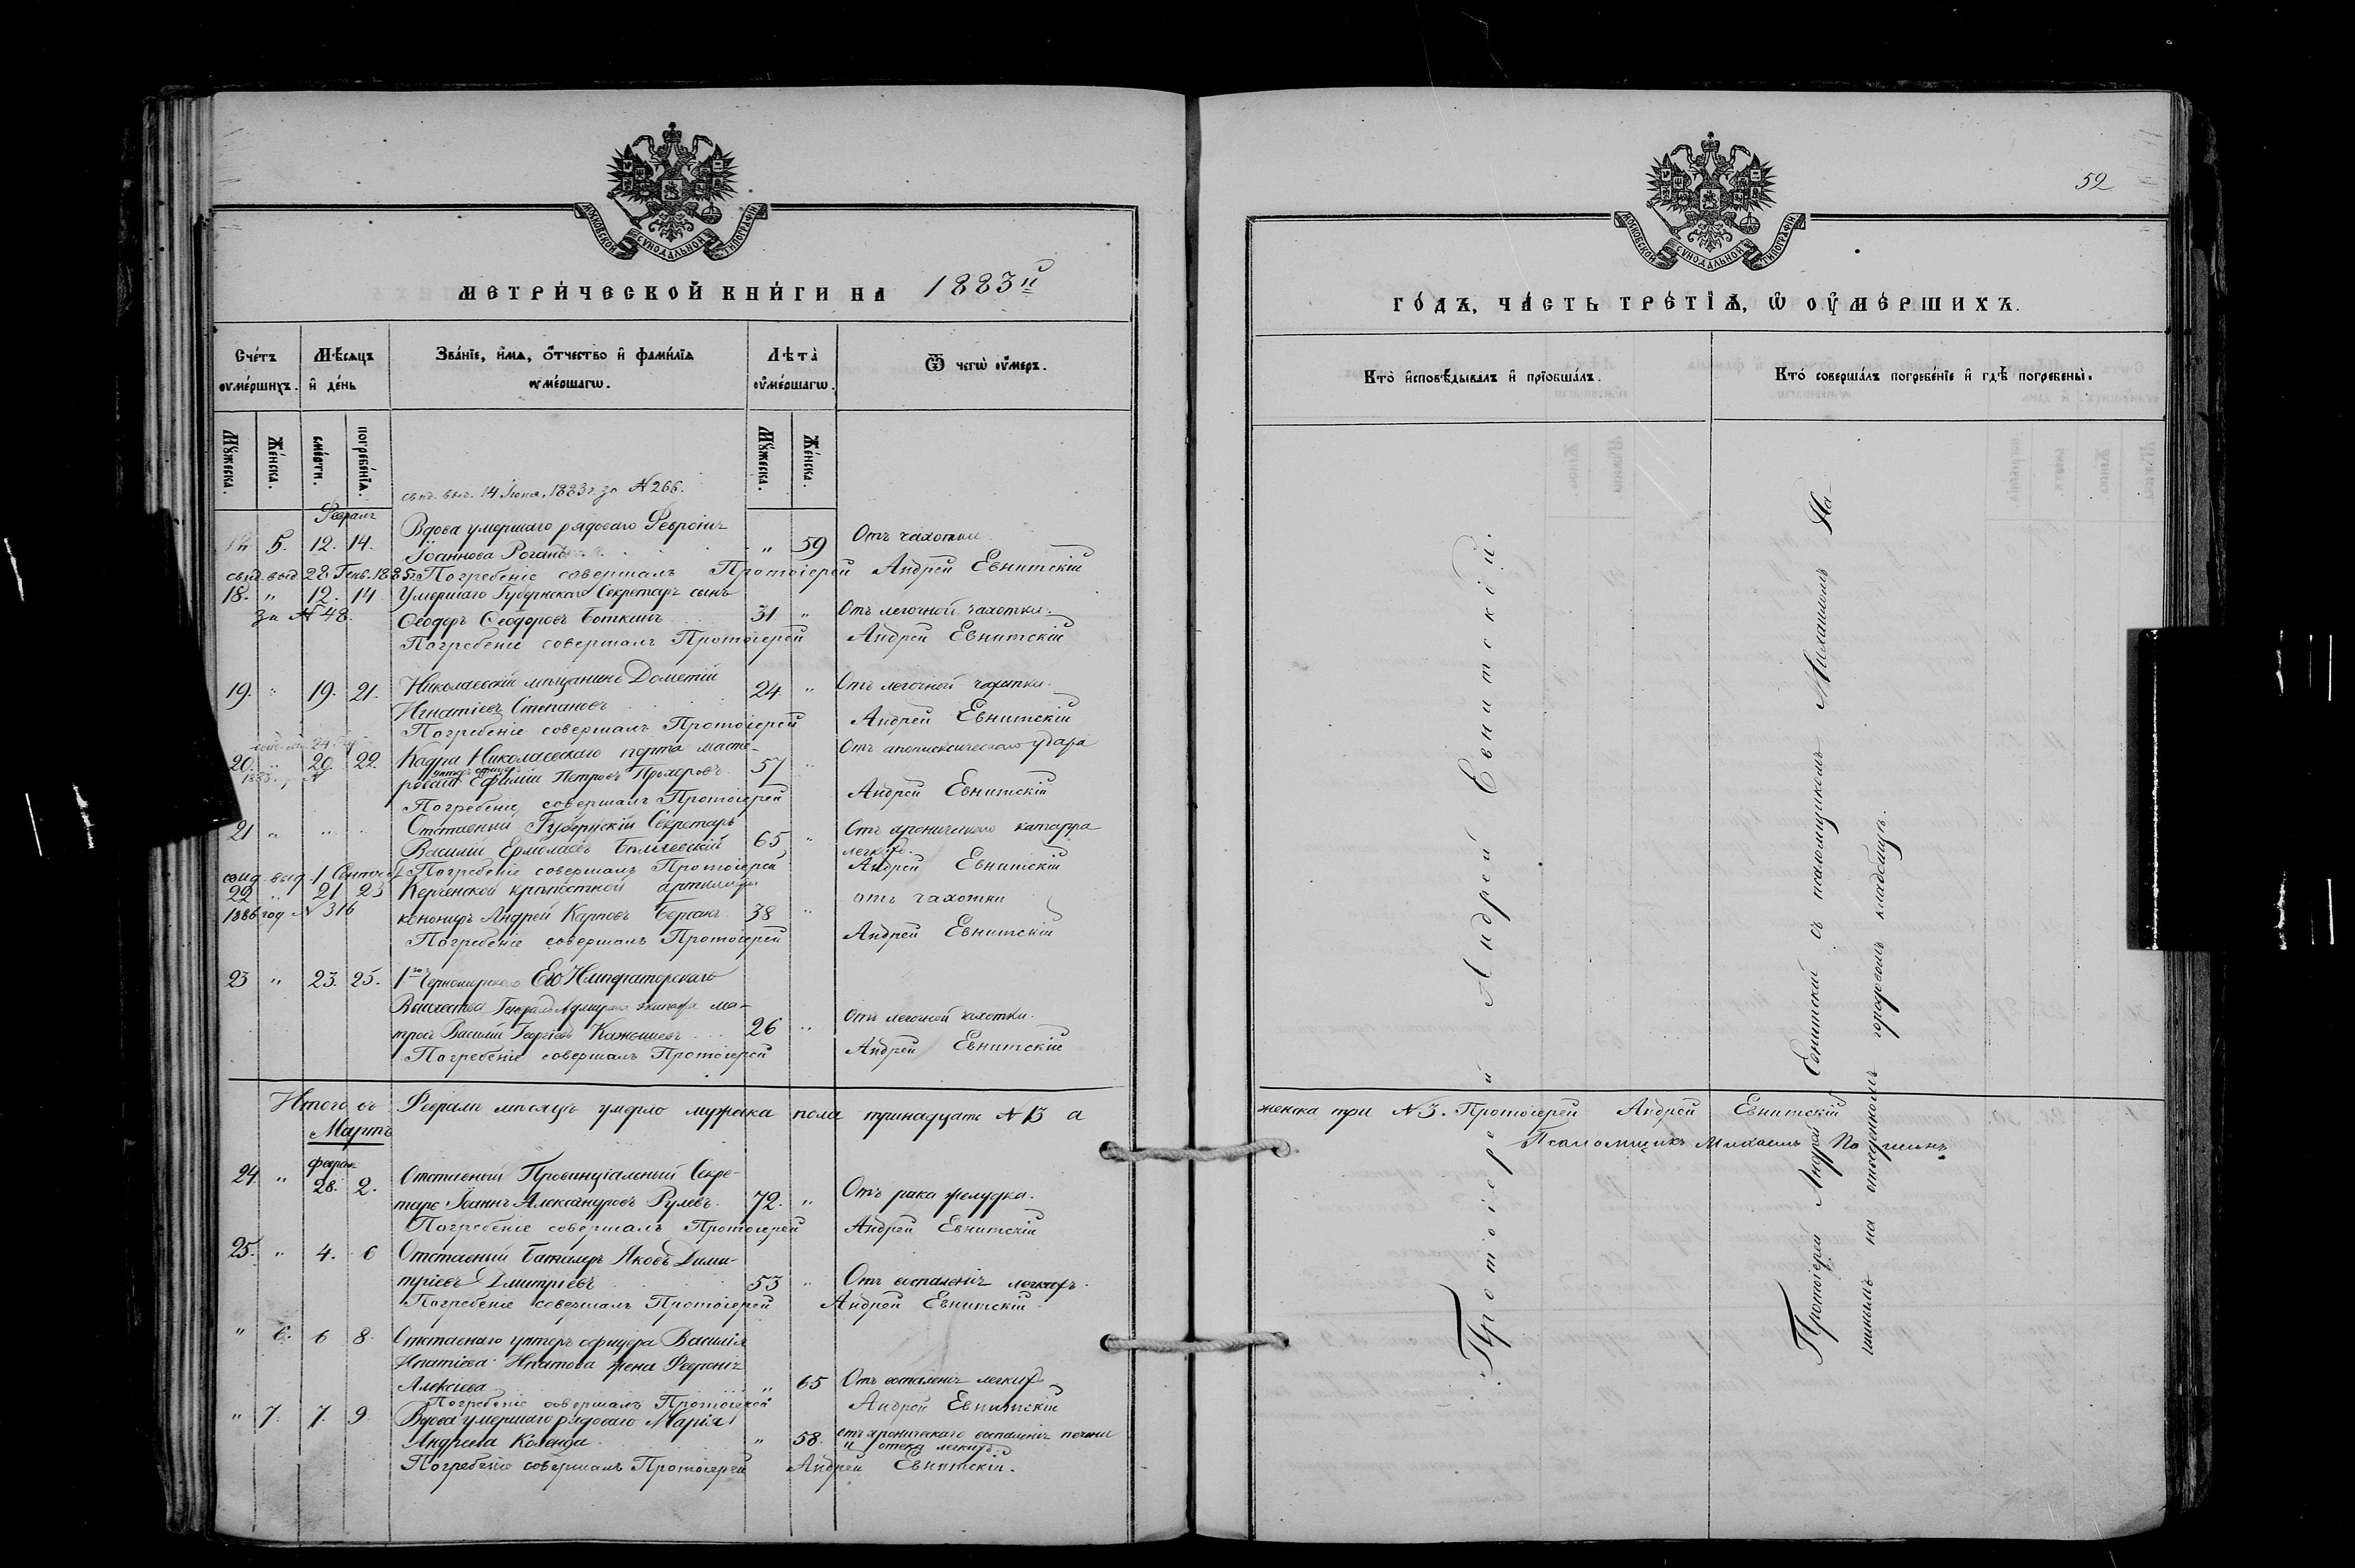 МОСКОВСКОЙ СѴНОДАЛЬНОЙ ТИПОГРАФІИ
МЕТРИ́ЧЕСКОЙ КНИ́ГИ НА 1883й
Сче́тъ ᲂумершихъ.
Мѣ́сяцъ и҆ де́нь
Зва́нїе, и҆́мѧ, ѻ҆́тчество и҆ фами́лїѧ ᲂуме́ршагѡ.
Лѣта̀ ᲂуме́ршагѡ.
Ѿ чегѡ̀ ᲂу҆́меръ.
Мꙋ́жеска.
Же́нска.
сме́рти.
погребе́нїѧ.
Мꙋ́жеска.
Же́нска.
свид. выд. 14 Іюня, 1883 г. за № 266.
Февраль
" 5. 12. 14. Вдова умершаго рядоваго Февронія " 59 Отъ чахотки.
Іоаннова
свид. выд. 28 Генв. 1885 г. Погребеніе совершалъ Протоіерей Андрей Евнитскій
18. " 12. 14 Умершаго Губернскаго Секретаря сынъ
за № 48. Ѳеодоръ Ѳеодоровъ Боткинъ 31 " Отъ легочной чахотки.
Погребеніе совершалъ Протоіерей Андрей Евнитскій
19. " 19. 21. Николаевскій мѣщанинъ Дометій 24 " Отъ легочной чахотки.
Игнатіевъ Степановъ
Погребеніе совершалъ Протоіерей Андрей Евнитскій
20. " 20. 22. Кадра Николаевскаго порта масте- Отъ апоплексическаго удара
унтеръ офицеръ
роваго Ефимій Петровъ Прохоровъ 57 "
Погребеніе совершалъ Протоіерей Андрей Евнитскій
21 " " Отставный Губернскій Секретарь Отъ хроническаго катарра
Василій Ермолаевъ 65 " легкихъ.
свид. выд. 1 Сентяб. Погребеніе совершалъ Протоіерей Андрей Евнитскій
22 " 21 23 Керченской крѣпостной артилеріи отъ чахотки
1886 год № 316 канониръ Андрей Карповъ 38 "
Погребеніе совершалъ Протоіерей Андрей Евнитскій
23 " 23. 25. 1го Черноморскаго Его Императорскаго
Высочества Генералъ Адмирала экипажа ма-
тросъ Василій Георгіевъ 26 " Отъ легочной чахотки.
Погребеніе совершалъ Протоіерей Андрей Евнитскій
Итого въ Февралѣ мѣсяцѣ умерло мужеска пола тринадцать № 13 а
Мартъ
феврал
24. " 28. 2. Отставный Провинціальный Секре-
тарь Іоаннъ Александровъ Рулевъ. 72. " Отъ рака желудка.
Погребеніе совершалъ Протоіерей Андрей Евнитскій
25. " 4. 6 Отставный Баталеръ Яковъ Дими-
тріевъ Дмитріевъ 53 " Отъ воспаленія легкихъ.
Погребеніе совершалъ Протоіерей Андрей Евнитскій
" 6. 6 8. Отставнаго унтеръ офицера Василія
Ипатіева Ипатова жена Февронія
Алексіева " 65 Отъ воспаленія легкихъ
Погребеніе совершалъ Протоіерей Андрей Евнитскій
" 7. 7. 9. Вдова умершаго рядоваго Марія
Андреева " 58. отъ хроническаго воспаленія печени
и отека легкихъ.
Погребеніе совершалъ Протоіерей Андрей Евнитскій.
52
МОСКОВСКОЙ СѴНОДАЛЬНОЙ ТИПОГРАФІИ
ГО́ДЪ, ЧА́СТЬ ТРЕ́ТЇѦ, Ѡ ОУ҆МЕ́РШИХЪ.
Кто̀ и҆сповѣ́дывалъ и҆ прїобща́лъ.
Кто́ соверша́лъ погребе́нїе и҆ гдѣ̀ погребены̀.
Протоіерей Андрей Евнитскій.
Протоіерей Андрей Евнитскій съ псаломщикомъ Михаиломъ Па-
шинымъ на отведенномъ городскомъ кладбищѣ.
женска три № 3. Протоіерей Андрей Евнитскій
Псаломщикъ Михаилъ Пашинъ